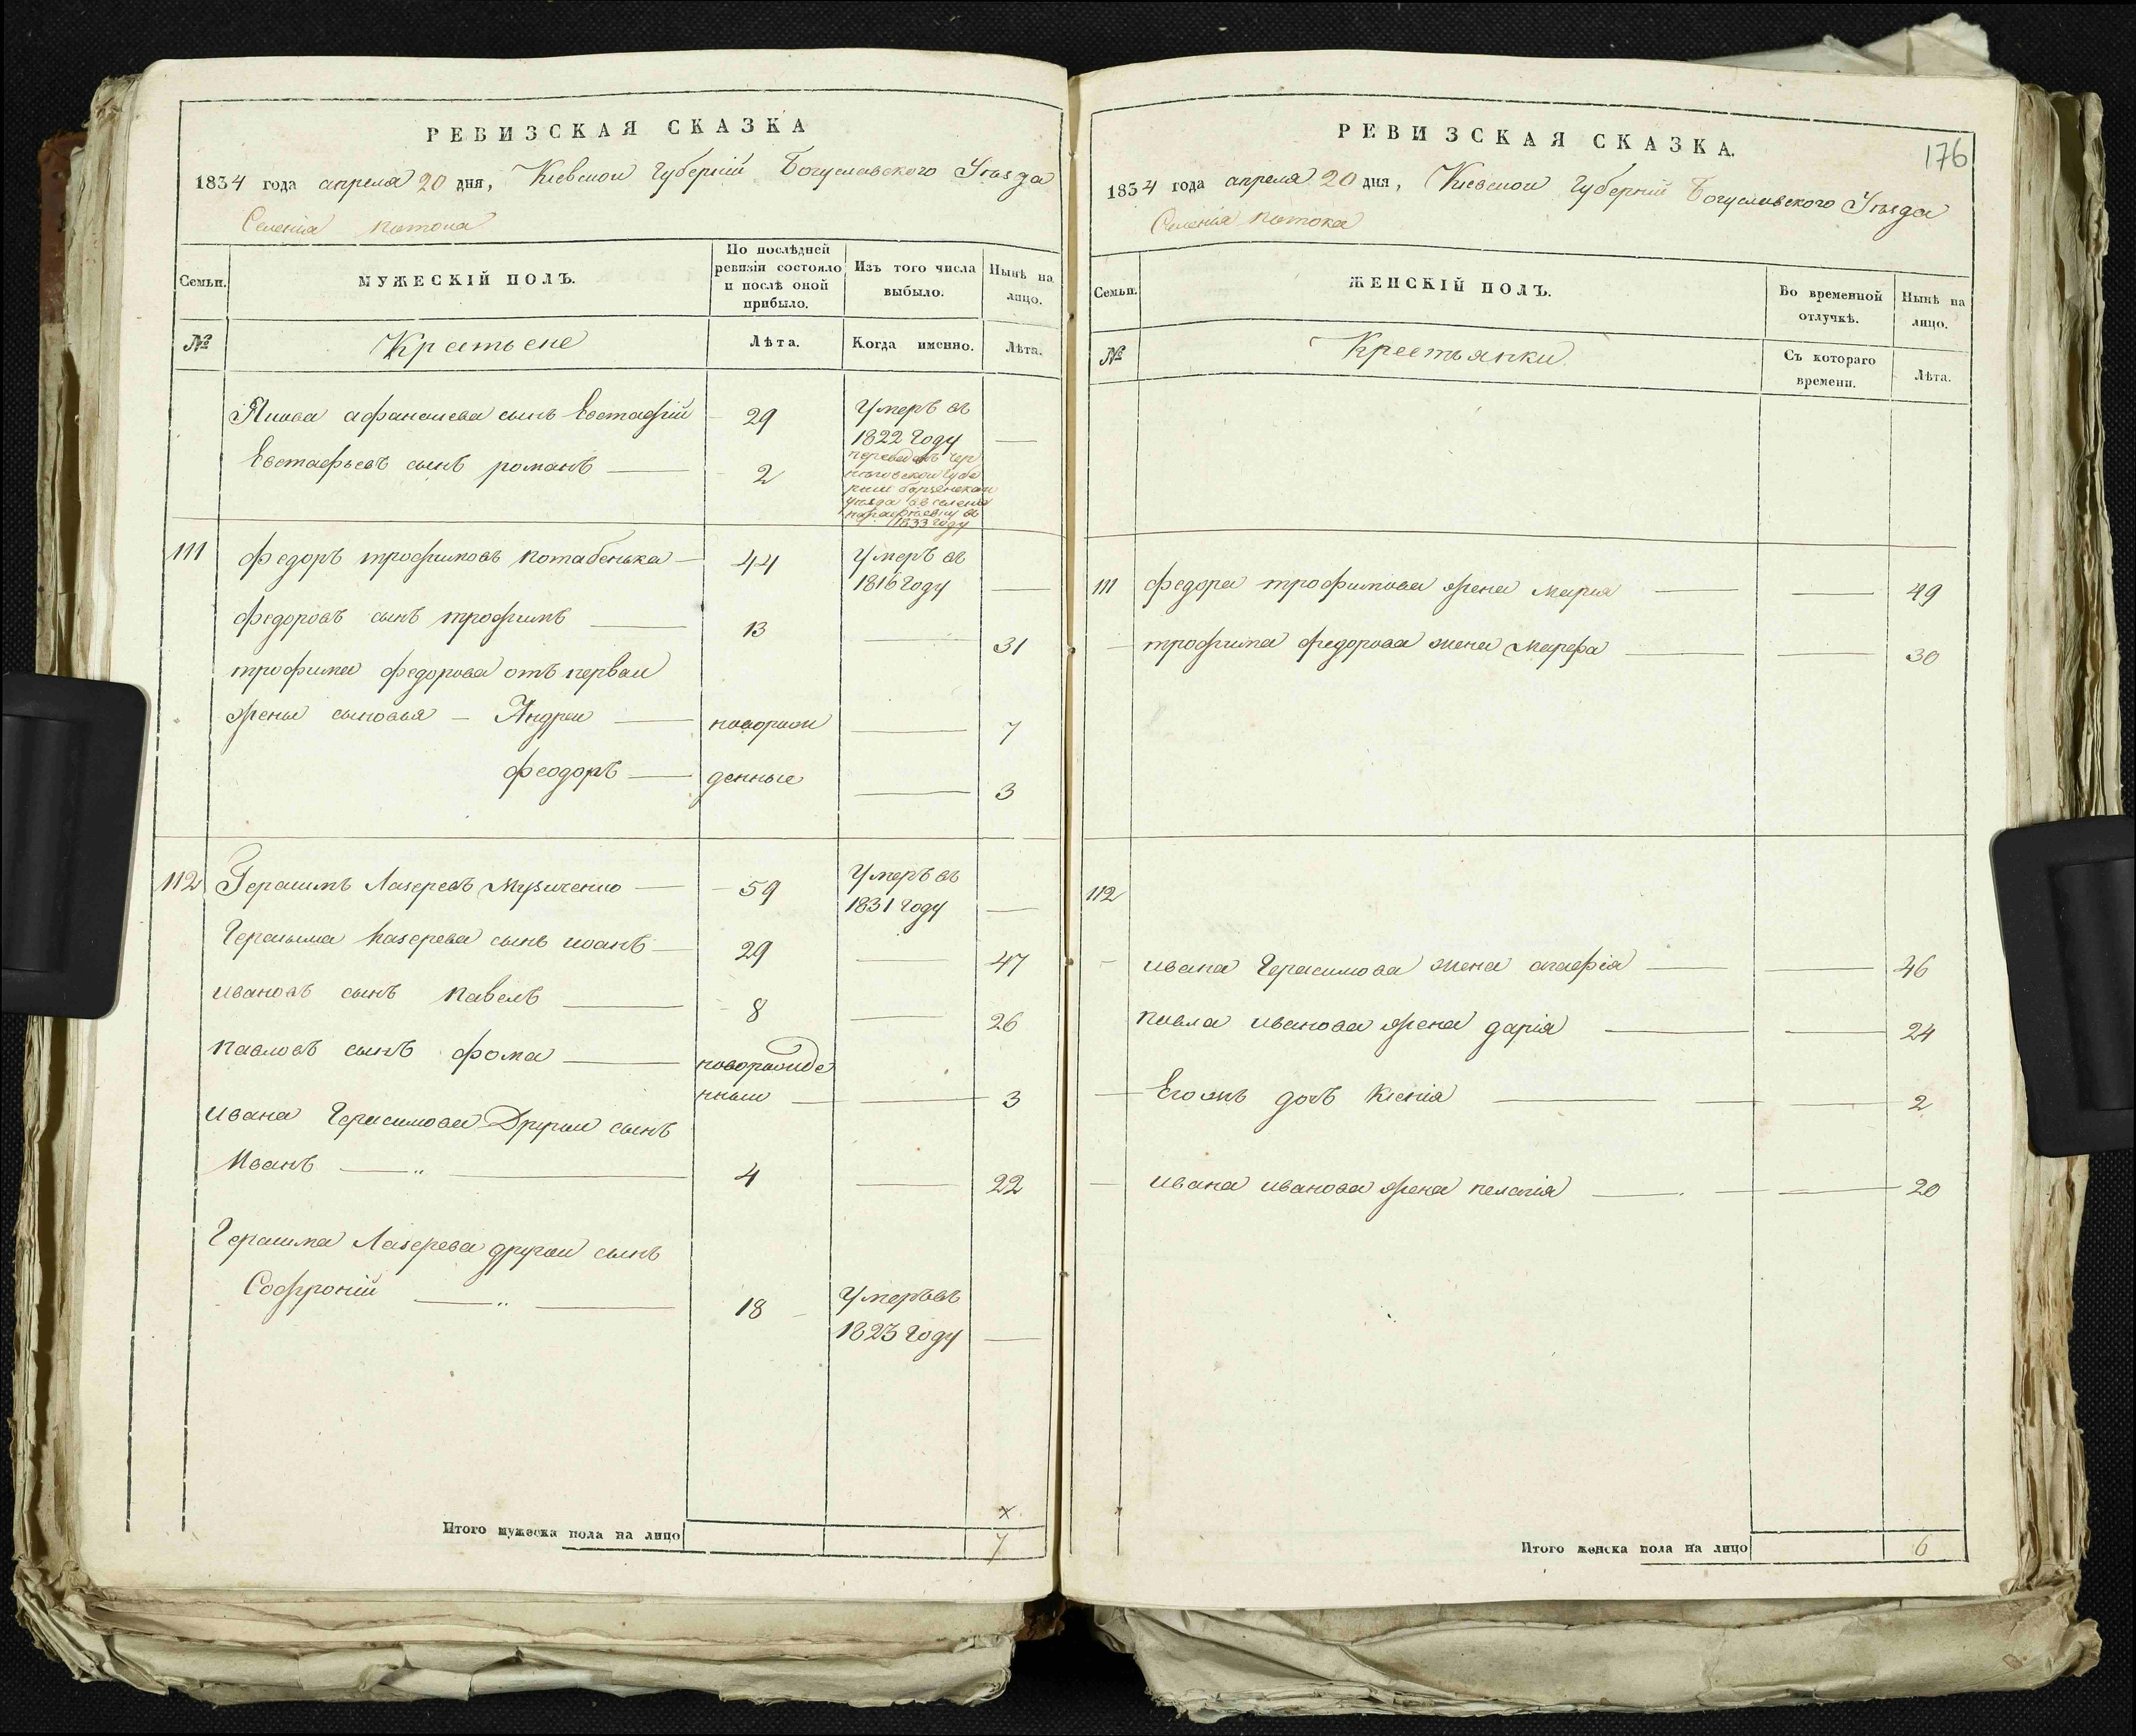 РЕВИЗСКАЯ СКАЗКА
1834 года апреля 20 дня, Кіевской Губерніи Богуславского Уѣзда
Селенія Потока
Семьи.
МУЖЕСКІЙ ПОЛЪ.
По послѣдней ревизіи состояло и послѣ оной прибыло.
Изъ того числа выбыло.
Нынѣ на лицо.
№
Крестьене
Лѣта.
Когда именно.
Лѣта.
Якова афанасиева сынъ Евстафій 29 Умеръ въ
1822 году —
Евстафьевъ сынъ романъ — 2 переведенъ чер
ниговской губе
рніи
уезда въ селение
въ
1833 году
111 федоръ трофимовъ Потабенька — 44 Умеръ въ
1816 году —
федоровъ сынъ трофимъ — 13 — 31
трофима федорова отъ первой
жены сыновья — Андрей — новорож — 7
феодоръ — денные — 3
112 Герасимъ Лазеревъ Музиченко — 59 Умеръ въ
1831 году —
Герасима Лазерева сынъ иванъ — 29 — 47
ивановъ сынъ павелъ — 8 — 26
павловъ сынъ фома — новорожде
нный — — 3
ивана Герасимова Другой сынъ
Иванъ — „ — 4 — 22
Герасима Лазерева другой сынъ
Софроній — „ — 18 — Умеръ въ
1823 году —
х
Итого мужеска пола на лицо 7
РЕВИЗСКАЯ СКАЗКА.
176
1834 года апреля 20 дня, Кіевской Губерніи Богуславского Уѣзда
Селенія Потока
Семьи.
ЖЕНСКІЙ ПОЛЪ.
Во временной отлучкѣ.
Нынѣ на лицо.
№
Крестьянки
Съ котораго времени.
Лѣта.
111 федора трофимова жена Мария — — 49
— трофима федорова жена Марфа — — 30
112
— ивана Герасимова жена агафія — — 46
павла иванова жена дарія — — 24
— Его жъ дочь Ксенія — — 2
— ивана иванова жена пелагія — — 20
Итого женска пола на лицо 6